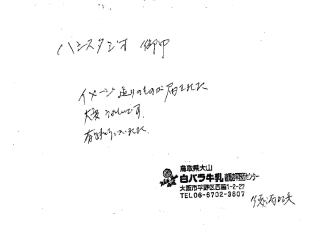 ハンスタジオ 御中
イメージ通りのものが届きました
大変うれしいです。
有難うございました
鳥取県大山
白バラ牛乳
大阪市平野区西脇1-2-27
TEL06-6702-3807